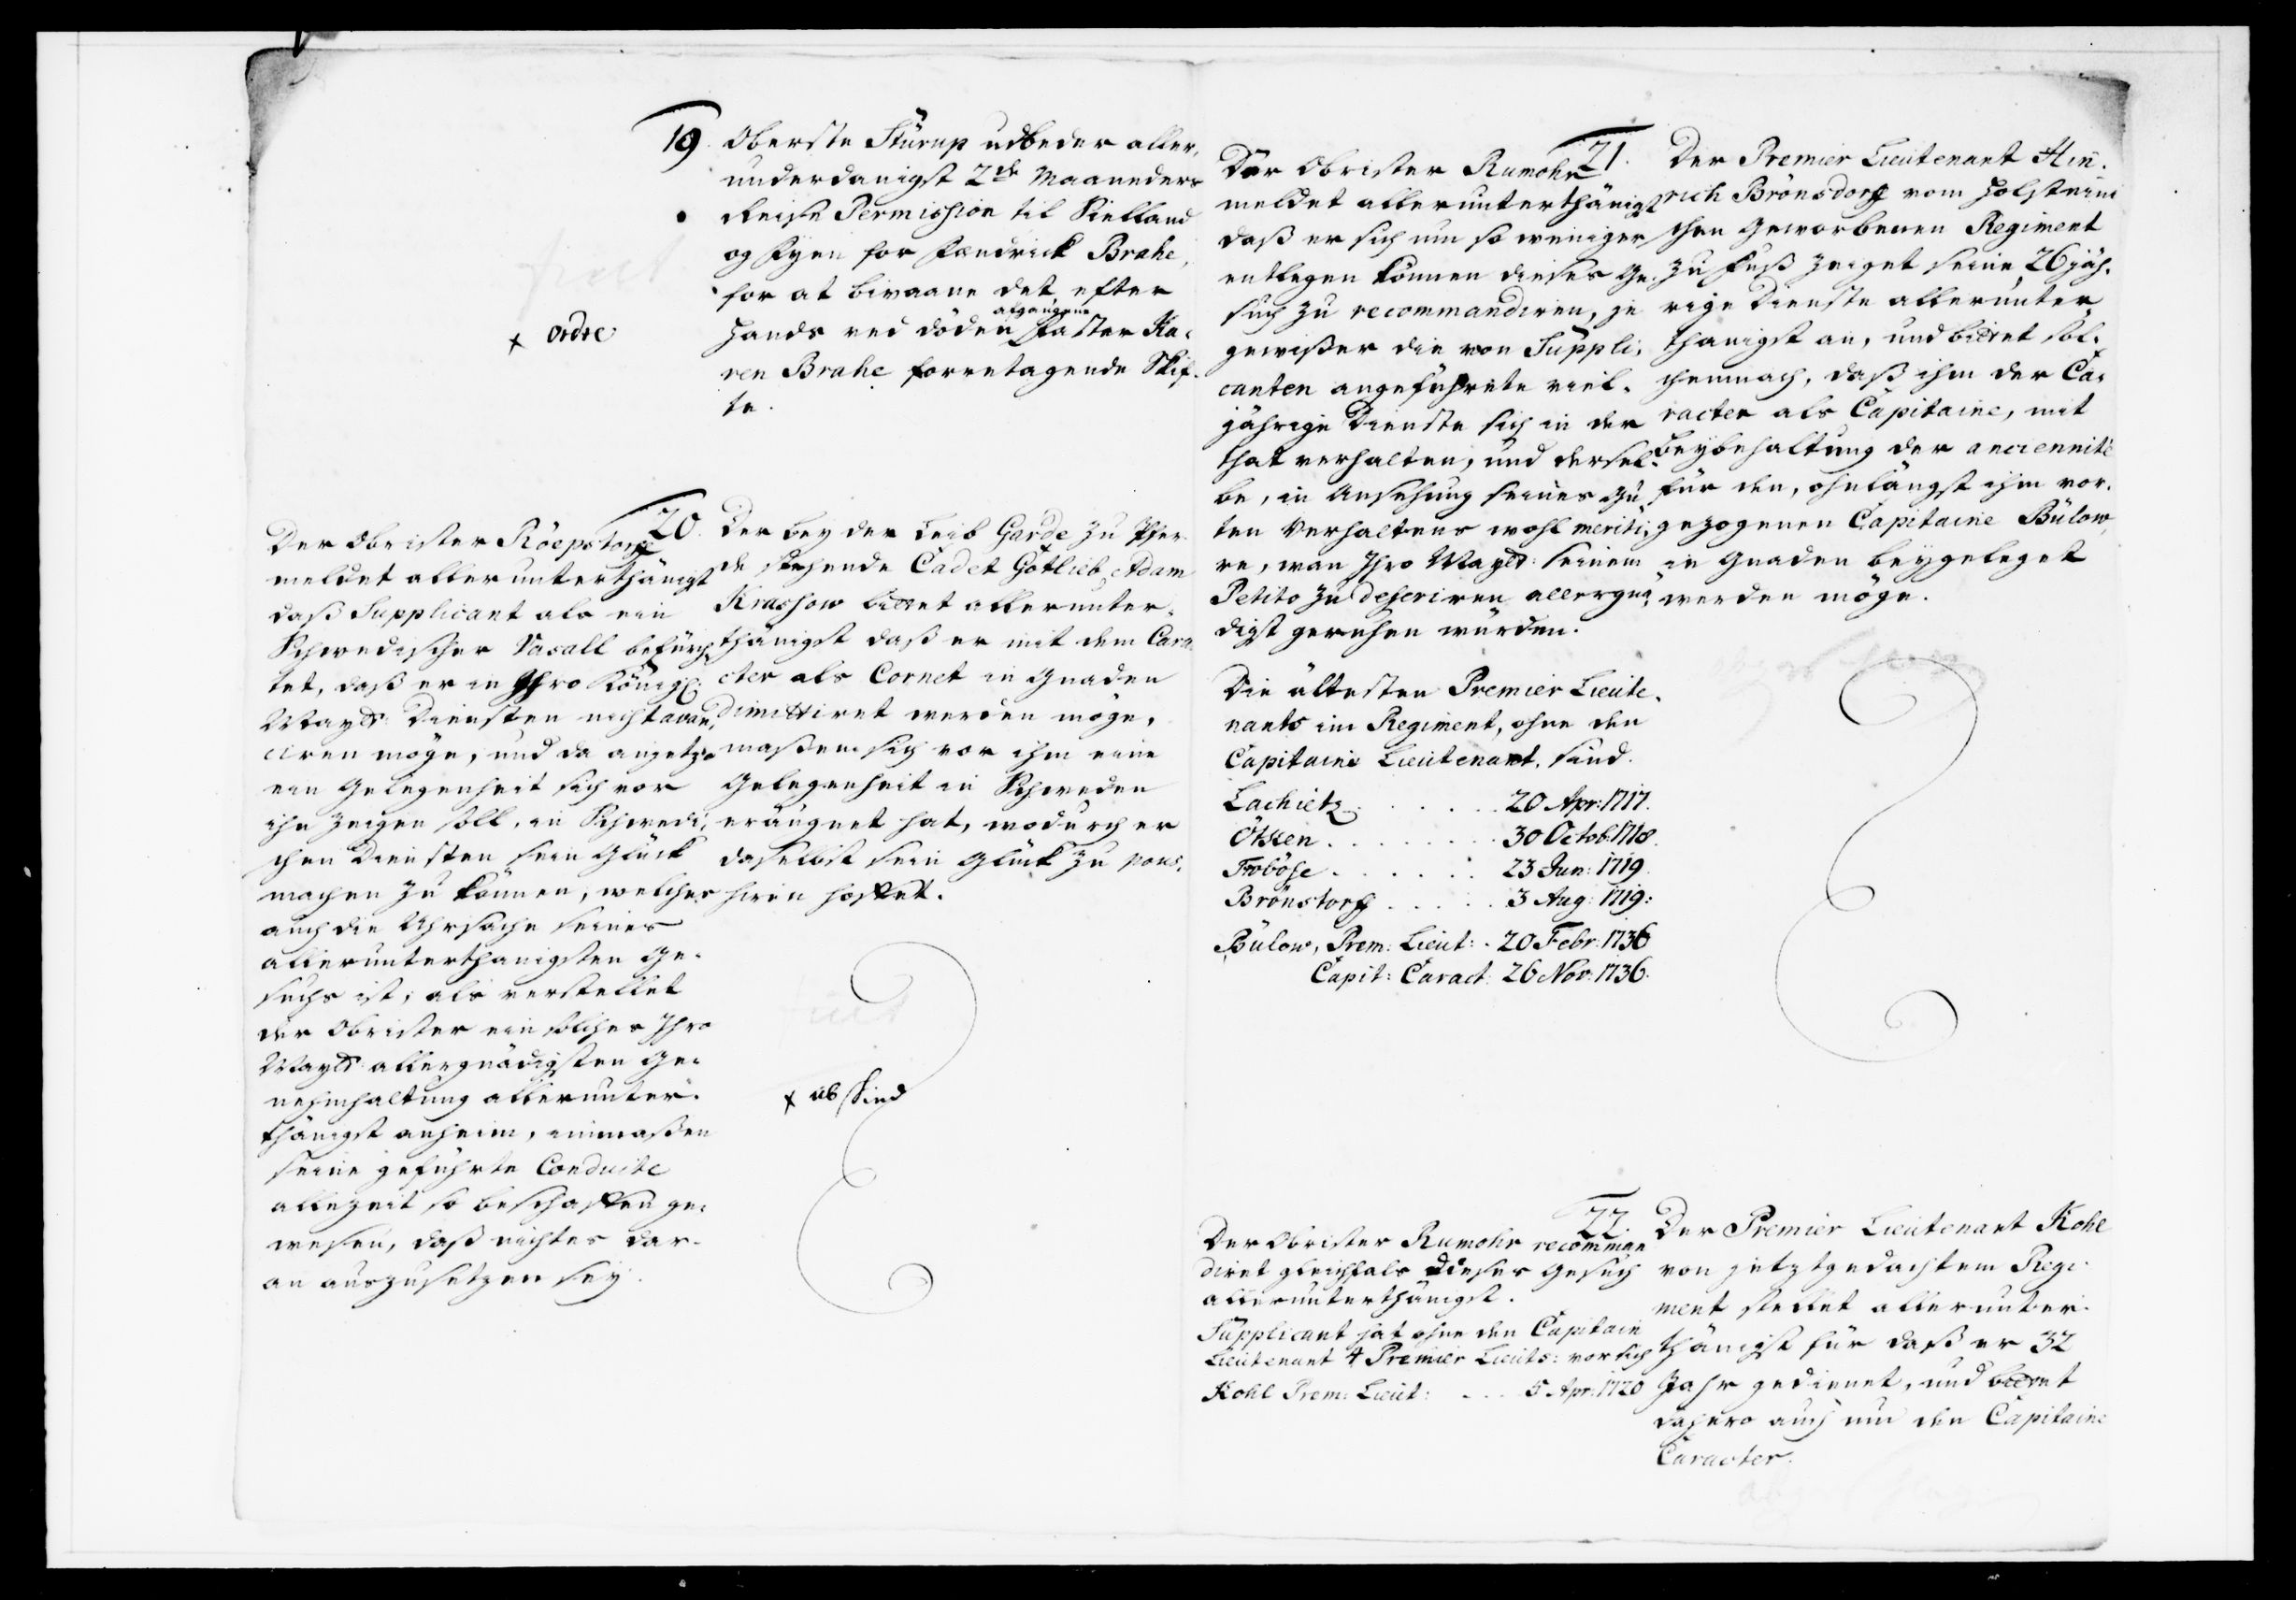 19. Oberste Stürup udbeder aller,
underdanigst 2de Maaneders
Reise Permission til Siælland
og Fyen for Fændrick Brahe,
for at bivaane det, efter
Hands ved döden afgangene Faster Ka,
ren Brahe foretagende Skif,
te.
x ordre
20.
Der Obrister Röepstorff
meldet allerunterthänigst
daß Supplicant als ein
Schwedischer Vasall befürch,
tet, daß er in Ihro Königl:
Mayts: Diensten nicht avan,
ciren möge, und da anjetzo
ein Gelegenheit sich vor
ihn zeigen soll, in Schwedi,
chen Diensten sein Glück
machen zu können, welches
auch die Uhrsache seines
allerunterthänigsten Ge,
suchs ist; als verstellet
der Obrister ein solches Ihro
Mayts: allergnädigsten Ge,
nehmhaltung allerunter,
thänigst anheim, immaßen
seine geführte Conduite
allezeit so beschaffen ge,
wesen, daß nichtes dar,
an auszusetzen sey.
Der bey der Leib Garde zu Pfer,
de stehende Cadet Gotlieb Adam
Krassow bittet allerunter,
thänigst daß er mit dem Cara,
cter als Cornet in Gnaden
dimittiret werden möge,
maßen sich vor ihm eine
Gelegenheit in Schweden
eräugnet hat, wodurch er
daselbst sein Glück zu pous,
siren hoffet.
x abskied
21.
Der Obrister Rumohr
meldet allerunterthänigst
daß er sich um so weniger
entlegen können dieses Ge,
such zu recommandiren, je
gewißer die von Suppli,
canten angeführete viel,
jährige Dienste sich in der
that verhalten, und dersel,
be, in Ansehung seines gu,
ten Verhaltens wohl meriti,
re, wan Ihro Mayts: seinem
Petito zu deferiren allergnä,
digst geruhen würden.
Die ältesten Premier Lieute,
nants im Regiment, ohne den
Capitaine Lieutenant, sind.
Lachietz . . . . . 20 Apr: 1717.
Ötken . . . . . . 30 Octob: 1718.
Froböse . . . . . . 23 Jun: 1719.
Brönstorff . . . . . 3 Aug: 1719:
Bülow, Prem: Lieut: . 20 Febr: 1736
Capit: Caract: 26 Nov: 1736.
Der Premier Lieutenant Hin,
rich Brönsdorff vom Holsteini
chen Geworbenen Regiment
zu Fuß zeiget seine 26 jäh,
rige Dienste allerunter,
thänigst an, und bittet sol,
chemnach, daß ihm der Ca,
racter als Capitaine, mit
Beybehaltung der anciennité
für den, ohnlängst ihm vor,
gezogenen Capitaine Bülow,
in Gnaden beygeleget
werden möge.
22.
Der Obrister Rumohr recomman
diret gleichfals dieses Gesuch
allerunterthänigst.
Supplicant hat ohne den Capitain
Lieutenant 4 Premier Lieuts: vor sich
Kohl Prem: Lieut: . . . 5 Apr: 1720
Der Premier Lieutenant Kohl
von jetztgedachtem Regi,
ment stellet allerunter,
thänigst für daß er 32
Jahr gedienet, und bittet
dahero auch um den Capitaine
Caracter.